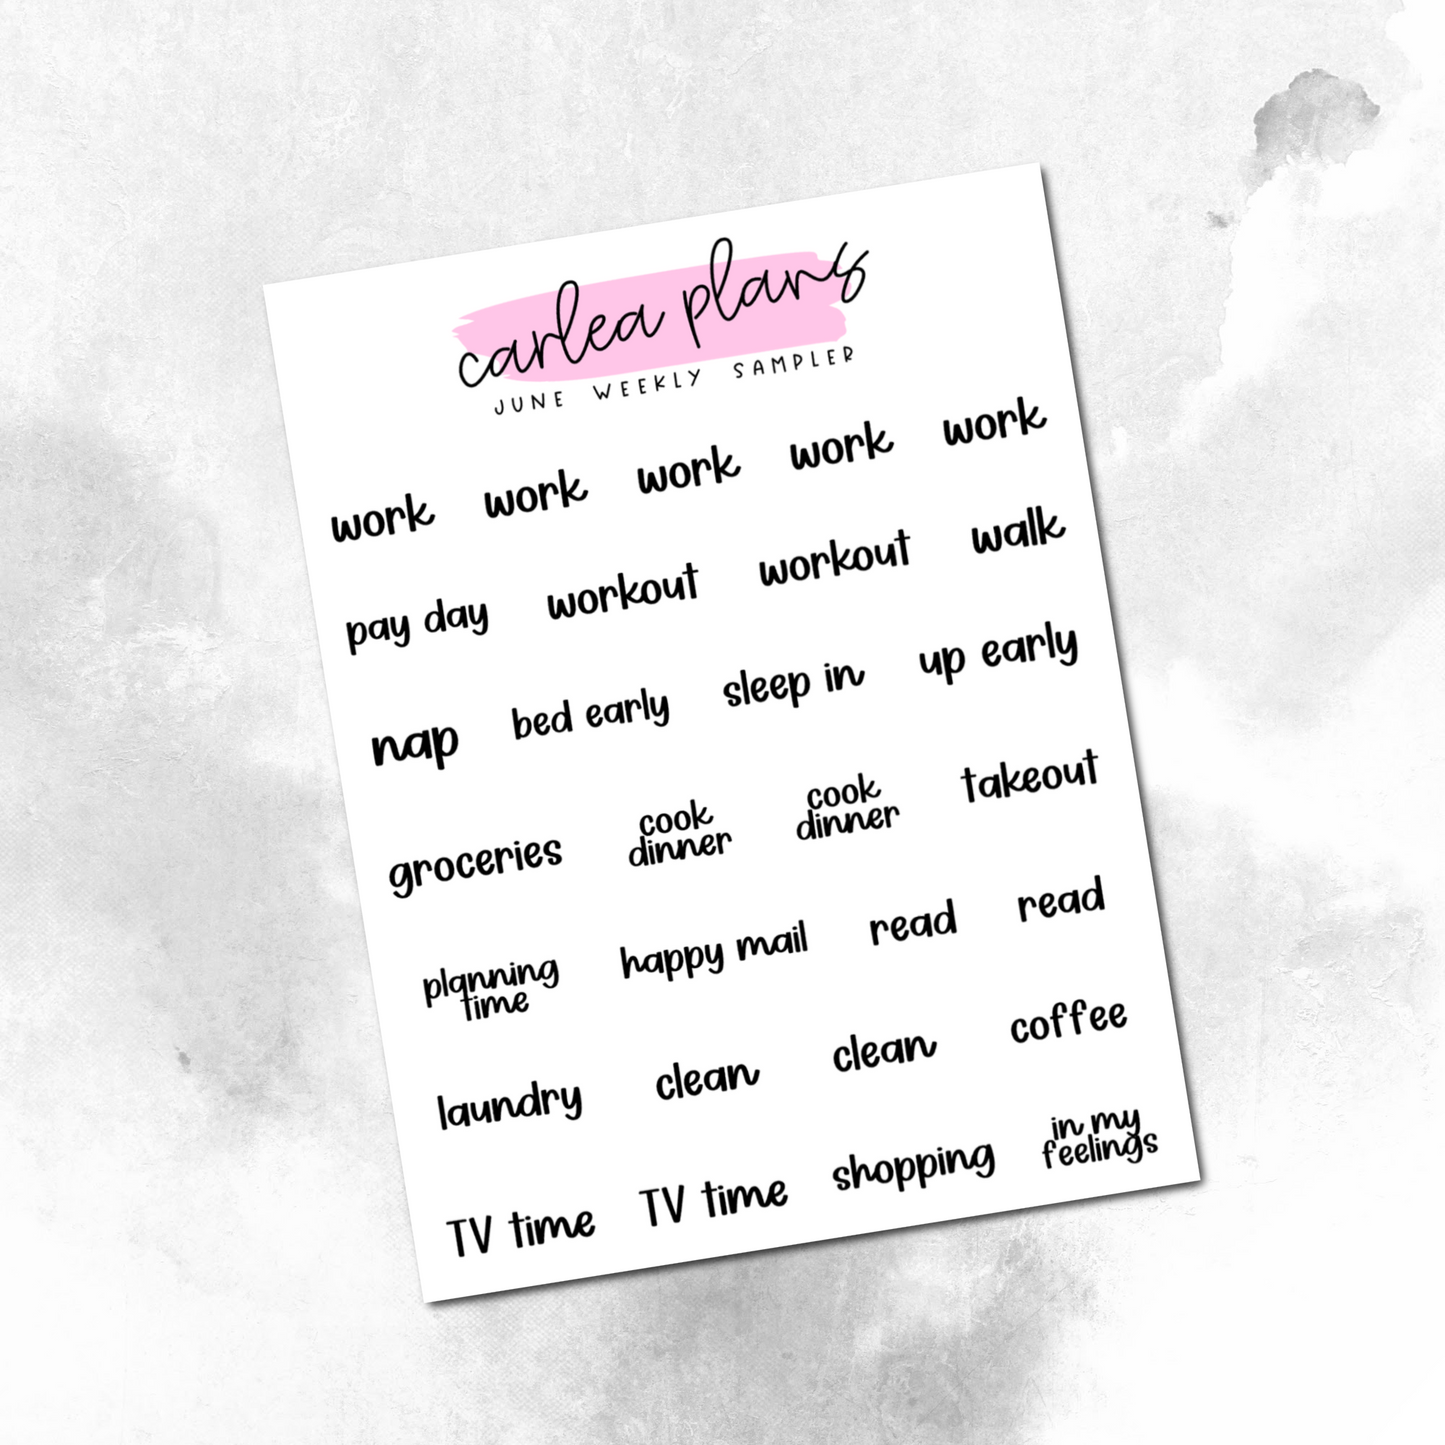 carlea plans
JUNE WEEKLY SAMPLER
work work work work work
pay day workout workout walk
nap bed early sleep in up early
groceries cook dinner cook dinner takeout
planning time happy mail read read
laundry clean clean coffee
TV time TV time shopping in my feelings